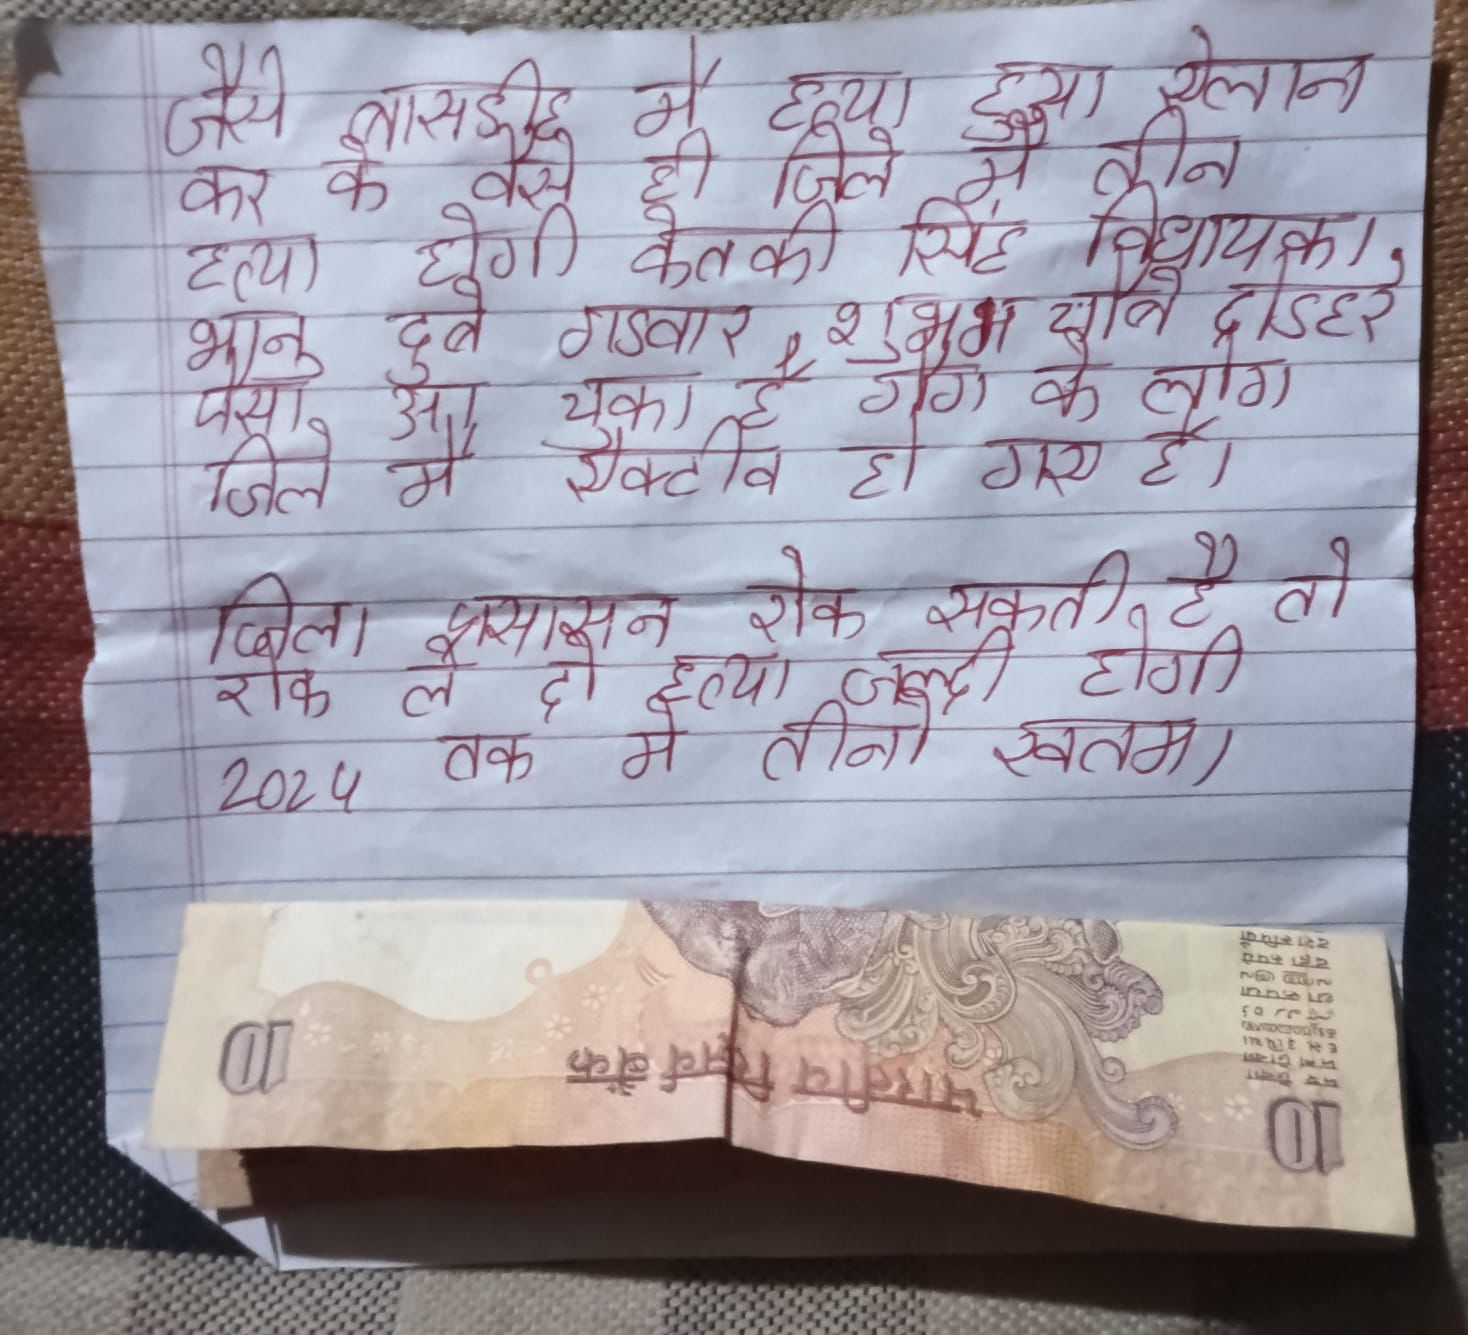 जैसे बासडीह में हत्या हुआ ऐलान
कर के वैसे ही जिले में तीन
हत्या होगी केतकी सिंह विधायका,
भानु दुबे गडवार, शुभम चौबे
पैसा आ चुका है गैंग के लोग
जिले में एक्टीव हो गए है।
जिला प्रसासन रोक सकती है तो
रोक ले दो हत्या जल्दी होगी
2024 तक मे तीनो खतम।
10
भारतीय रिज़र्व बैंक
10